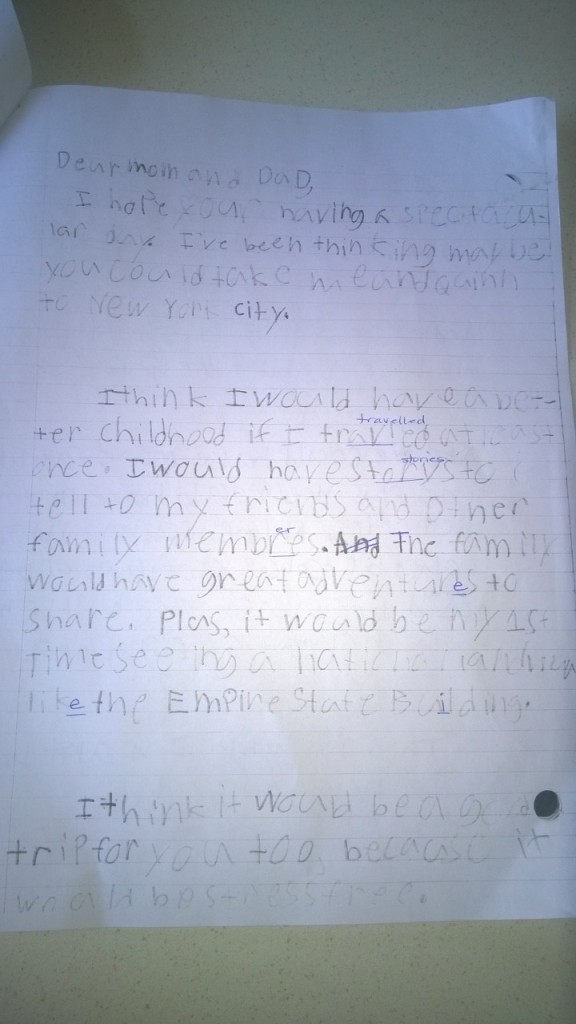 Dear mom and DaD,
I hope your having a spectacu-
lar day. I've been thinking maybe
you could take me and quinn
to New York city.
I think I would have a bet-
travelled
ter childhood if I travled at least
stories
once. I would have storys to
tell to my friends and other
er
family membres. And The family
would have great adventures to
share. Plus, it would be my 1st
Time seeing a national
like the Empire State Building.
I think it would be a good
trip for you too because it
would be stress free.